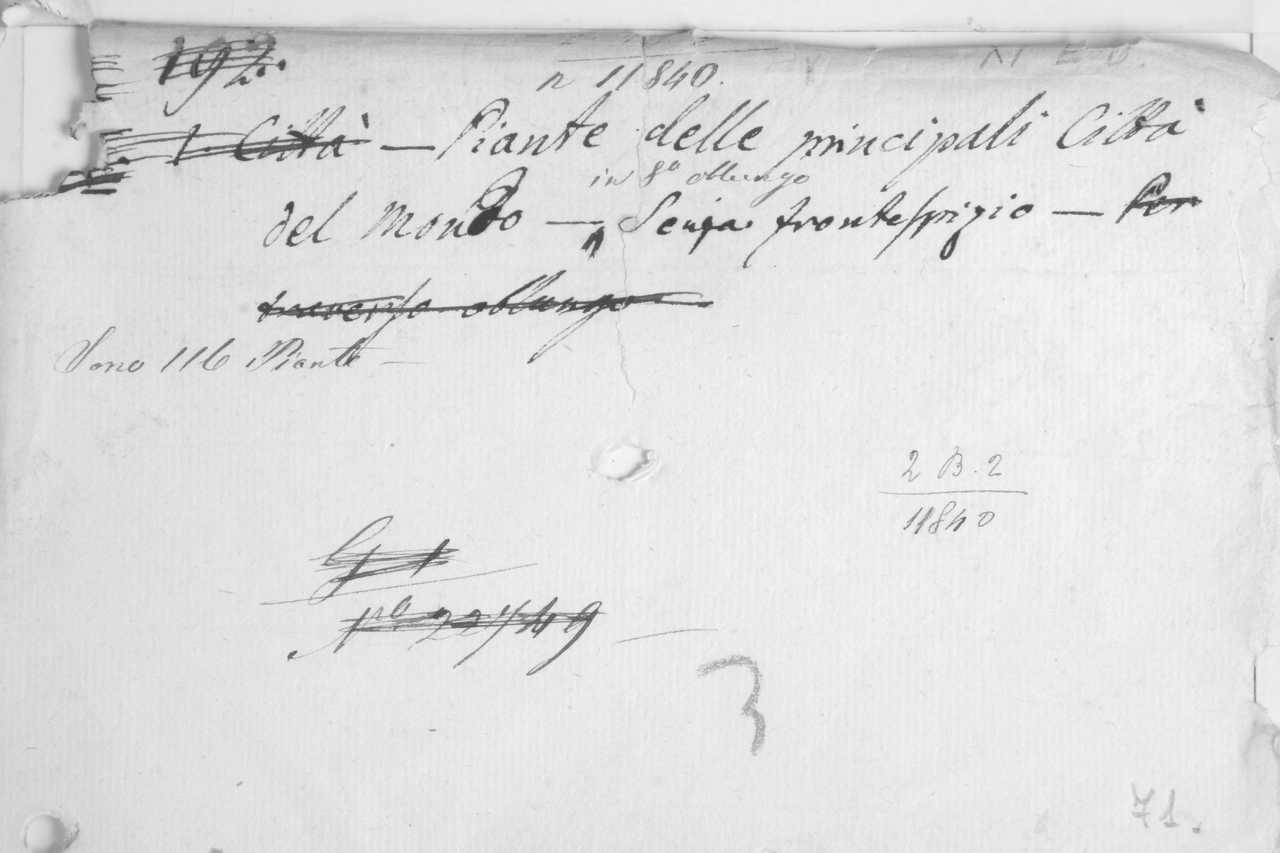 192.
n 11840.
1. Città — Piante delle principali Città
in 8° oblungo
del Mondo — Senza frontespizio — Per
traverso oblungo
Sono 116 Piante —
2 B. 2
11840
G 1
N° 22749
3
71.